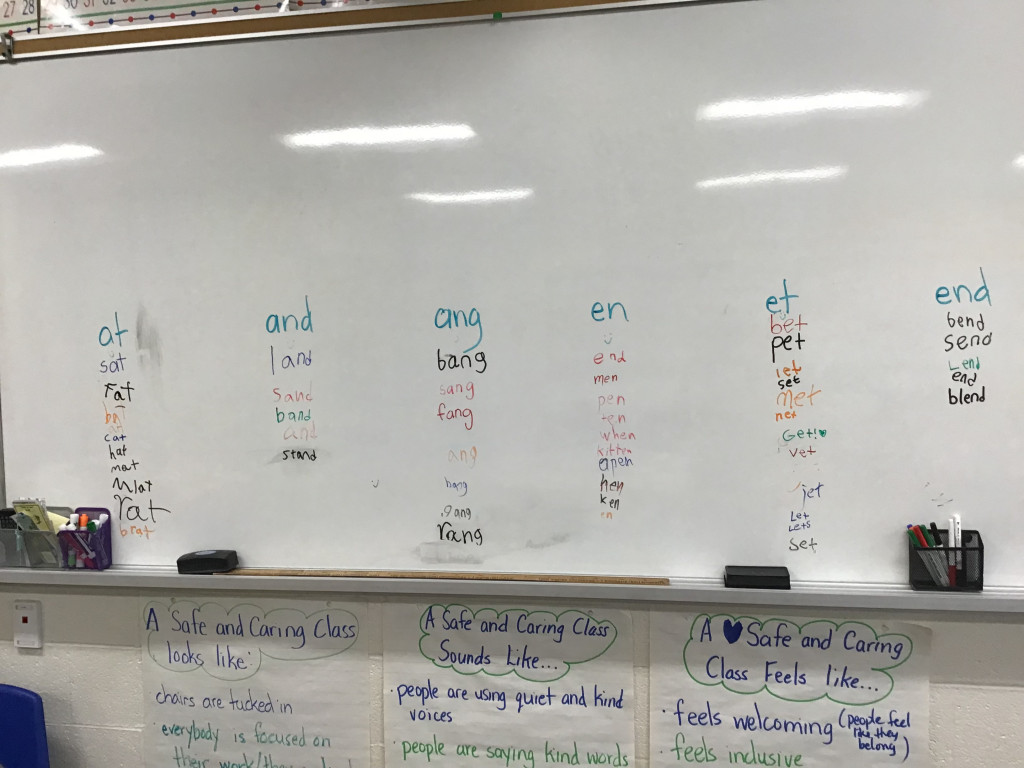 27 28
at
sat
rat
cat
hat
mat
rat
brat
and
land
sand
band
and
stand
ang
bang
sang
fang
ang
bang
gang
rang
en
end
men
pen
ten
when
kitten
open
hen
ken
en
et
bet
pet
set
met
net
Get!
vet
jet
Let
Lets
set
end
bend
send
Lend
end
blend
A Safe and Caring Class
looks like:
chairs are tucked in
· everybody is focused on
their work/
A Safe and Caring Class
Sounds Like...
· people are using quiet and kind
voices
· people are saying kind words
A ♥ Safe and Caring
Class Feels like...
· feels welcoming (people feel
like they
belong)
· feels inclusive